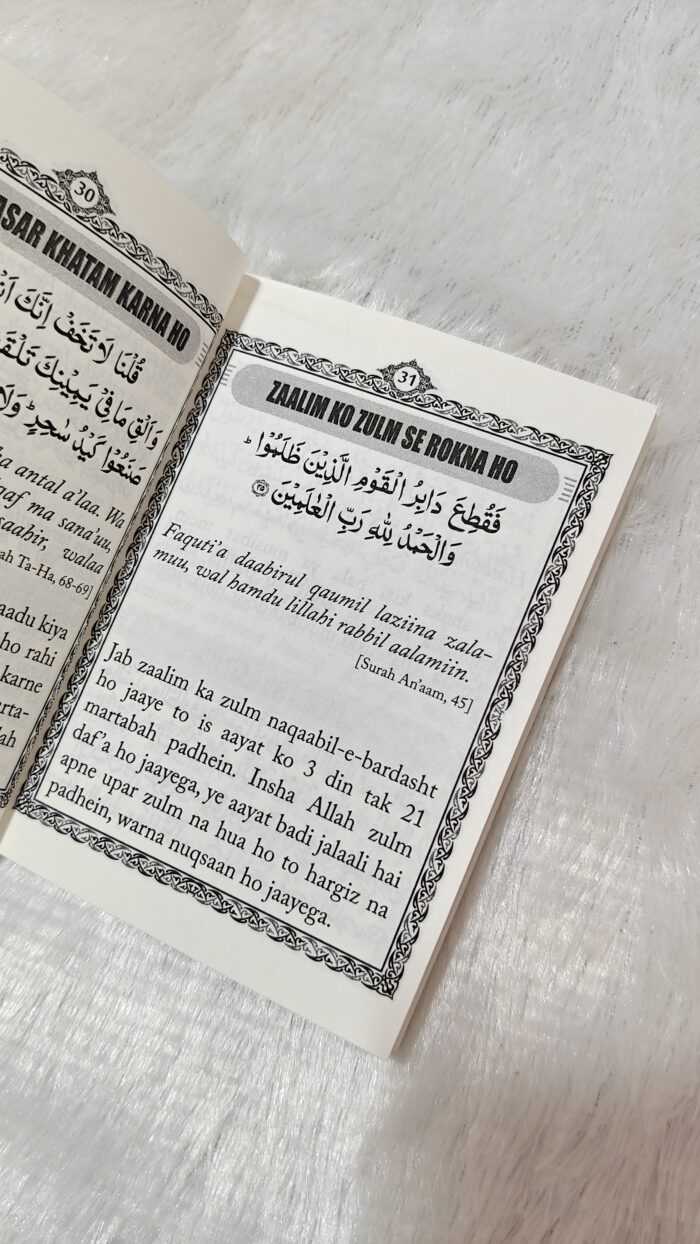 30
ASAR KHATAM KARNA HO
قُلْنَا لَا تَخَفْ اِنَّكَ
وَاَلْقِ مَا فِيْ يَمِيْنِكَ تَلْقَفْ
صَنَعُوْا كَيْدُ سٰحِرٍ ؕ وَلَا
antal a'laa. Wa
ma sana'uu,
saahir, walaa
Ta-Ha, 68-69]
kiya
ho rahi
karne
31
ZAALIM KO ZULM SE ROKNA HO
فَقُطِعَ دَابِرُ الْقَوْمِ الَّذِيْنَ ظَلَمُوْا ؕ
وَالْحَمْدُ لِلّٰهِ رَبِّ الْعٰلَمِيْنَ ۴۵
Faquti'a daabirul qaumil laziina zala-
muu, wal hamdu lillahi rabbil aalamiin.
[Surah An'aam, 45]
Jab zaalim ka zulm naqaabil-e-bardasht
ho jaaye to is aayat ko 3 din tak 21
martabah padhein. Insha Allah zulm
daf'a ho jaayega, ye aayat badi jalaali hai
apne upar zulm na hua ho to hargiz na
padhein, warna nuqsaan ho jaayega.